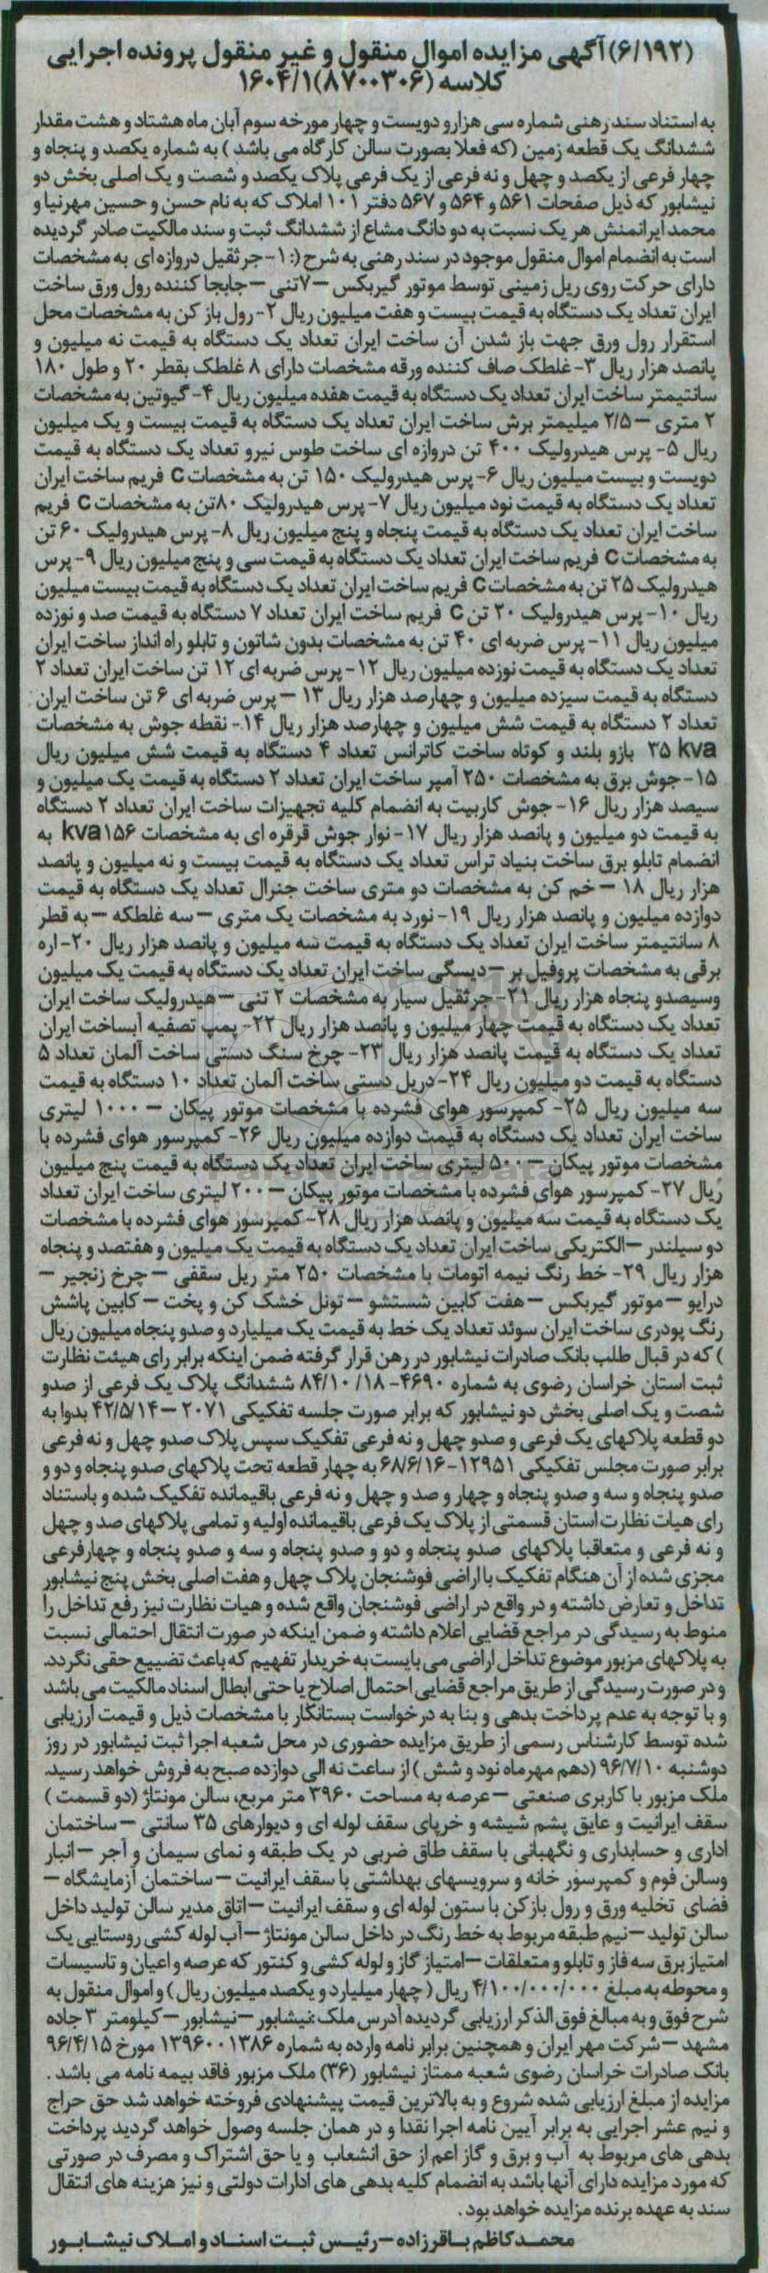 (۶/۱۹۲) آگهی مزایده اموال منقول و غیر منقول پرونده اجرایی
کلاسه (۸۷۰۰۳۰۶)۱۶۰۴/۱
به استناد سند رهنی شماره سی هزارو دویست و چهار مورخه سوم آبان ماه هشتاد و هشت مقدار
ششدانگ یک قطعه زمین (که فعلا بصورت سالن کارگاه می باشد ) به شماره یکصد و پنجاه و
چهار فرعی از یکصد و چهل و نه فرعی از یک فرعی پلاک یکصد و شصت و یک اصلی بخش دو
نیشابور که ذیل صفحات ۵۶۱ و ۵۶۴ و ۵۶۷ دفتر ۱۰۱ املاک که به نام حسن و حسین مهرنیا و
محمد ایرانمنش هر یک نسبت به دو دانگ مشاع از ششدانگ ثبت و سند مالکیت صادر گردیده
است به انضمام اموال منقول موجود در سند رهنی به شرح (: ۱- جرثقیل دروازه ای به مشخصات
دارای حرکت روی ریل زمینی توسط موتور گیربکس –۷تنی –جابجا کننده رول ورق ساخت
ایران تعداد یک دستگاه به قیمت بیست و هفت میلیون ریال ۲- رول باز کن به مشخصات محل
استقرار رول ورق جهت باز شدن آن ساخت ایران تعداد یک دستگاه به قیمت نه میلیون و
پانصد هزار ریال ۳- غلطک صاف کننده ورقه مشخصات دارای ۸ غلطک بقطر ۲۰ و طول ۱۸۰
سانتیمتر ساخت ایران تعداد یک دستگاه به قیمت هفده میلیون ریال ۴- گیوتین به مشخصات
۲ متری – ۲/۵ میلیمتر برش ساخت ایران تعداد یک دستگاه به قیمت بیست و یک میلیون
ریال ۵- پرس هیدرولیک ۴۰۰ تن دروازه ای ساخت طوس نیرو تعداد یک دستگاه به قیمت
دویست و بیست میلیون ریال ۶- پرس هیدرولیک ۱۵۰ تن به مشخصات C فریم ساخت ایران
تعداد یک دستگاه به قیمت نود میلیون ریال ۷- پرس هیدرولیک ۸۰تن به مشخصات C فریم
ساخت ایران تعداد یک دستگاه به قیمت پنجاه و پنج میلیون ریال ۸- پرس هیدرولیک ۶۰ تن
به مشخصات C فریم ساخت ایران تعداد یک دستگاه به قیمت سی و پنج میلیون ریال ۹- پرس
هیدرولیک ۲۵ تن به مشخصات C فریم ساخت ایران تعداد یک دستگاه به قیمت بیست میلیون
ریال ۱۰- پرس هیدرولیک ۲۰ تن C فریم ساخت ایران تعداد ۷ دستگاه به قیمت صد و نوزده
میلیون ریال ۱۱- پرس ضربه ای ۴۰ تن به مشخصات بدون شاتون و تابلو راه انداز ساخت ایران
تعداد یک دستگاه به قیمت نوزده میلیون ریال ۱۲- پرس ضربه ای ۱۲ تن ساخت ایران تعداد ۲
دستگاه به قیمت سیزده میلیون و چهارصد هزار ریال ۱۳ – پرس ضربه ای ۶ تن ساخت ایران
تعداد ۲ دستگاه به قیمت شش میلیون و چهارصد هزار ریال ۱۴- نقطه جوش به مشخصات
۳۵ kva بازو بلند و کوتاه ساخت کاترانس تعداد ۴ دستگاه به قیمت شش میلیون ریال
۱۵- جوش برق به مشخصات ۲۵۰ آمپر ساخت ایران تعداد ۲ دستگاه به قیمت یک میلیون و
سیصد هزار ریال ۱۶- جوش کاربیت به انضمام کلیه تجهیزات ساخت ایران تعداد ۲ دستگاه
به قیمت دو میلیون و پانصد هزار ریال ۱۷- نوار جوش قرقره ای به مشخصات ۱۵۶kva به
انضمام تابلو برق ساخت بنیاد تراس تعداد یک دستگاه به قیمت بیست و نه میلیون و پانصد
هزار ریال ۱۸ – خم کن به مشخصات دو متری ساخت جنرال تعداد یک دستگاه به قیمت
دوازده میلیون و پانصد هزار ریال ۱۹- نورد به مشخصات یک متری – سه غلطکه – به قطر
۸ سانتیمتر ساخت ایران تعداد یک دستگاه به قیمت سه میلیون و پانصد هزار ریال ۲۰- اره
برقی به مشخصات پروفیل بر –دیسگی ساخت ایران تعداد یک دستگاه به قیمت یک میلیون
وسیصدو پنجاه هزار ریال ۲۱- جرثقیل سیار به مشخصات ۲ تنی –هیدرولیک ساخت ایران
تعداد یک دستگاه به قیمت چهار میلیون و پانصد هزار ریال ۲۲- پمپ تصفیه آبساخت ایران
تعداد یک دستگاه به قیمت پانصد هزار ریال ۲۳- چرخ سنگ دستی ساخت آلمان تعداد ۵
دستگاه به قیمت دو میلیون ریال ۲۴- دریل دستی ساخت آلمان تعداد ۱۰ دستگاه به قیمت
سه میلیون ریال ۲۵- کمپرسور هوای فشرده با مشخصات موتور پیکان – ۱۰۰۰ لیتری
ساخت ایران تعداد یک دستگاه به قیمت دوازده میلیون ریال ۲۶- کمپرسور هوای فشرده با
مشخصات موتور پیکان – ۵۰۰ لیتری ساخت ایران تعداد یک دستگاه به قیمت پنج میلیون
ریال ۲۷- کمپرسور هوای فشرده با مشخصات موتور پیکان – ۲۰۰ لیتری ساخت ایران تعداد
یک دستگاه به قیمت سه میلیون و پانصد هزار ریال ۲۸- کمپرسور هوای فشرده با مشخصات
دو سیلندر –الکتریکی ساخت ایران تعداد یک دستگاه به قیمت یک میلیون و هفتصد و پنجاه
هزار ریال ۲۹- خط رنگ نیمه اتومات با مشخصات ۲۵۰ متر ریل سقفی – چرخ زنجیر –
درایو – موتور گیربکس – هفت کابین شستشو – تونل خشک کن و پخت – کابین پاشش
رنگ پودری ساخت ایران سوئد تعداد یک خط به قیمت یک میلیارد و صدو پنجاه میلیون ریال
) که در قبال طلب بانک صادرات نیشابور در رهن قرار گرفته ضمن اینکه برابر رای هیئت نظارت
ثبت استان خراسان رضوی به شماره ۴۶۹۰- ۸۴/۱۰/۱۸ ششدانگ پلاک یک فرعی از صدو
شصت و یک اصلی بخش دو نیشابور که برابر صورت جلسه تفکیکی ۲۰۷۱ – ۴۲/۵/۱۴ بدوا به
دو قطعه پلاکهای یک فرعی و صدو چهل و نه فرعی تفکیک سپس پلاک صدو چهل و نه فرعی
برابر صورت مجلس تفکیکی ۱۲۹۵۱- ۶۸/۶/۱۶ به چهار قطعه تحت پلاکهای صدو پنجاه و دو و
صدو پنجاه و سه و صدو پنجاه و چهار و صد و چهل و نه فرعی باقیمانده تفکیک شده و باستناد
رای هیات نظارت استان قسمتی از پلاک یک فرعی باقیمانده اولیه و تمامی پلاکهای صد و چهل
و نه فرعی و متعاقبا پلاکهای صدو پنجاه و دو و صدو پنجاه و سه و صدو پنجاه و چهارفرعی
مجزی شده از آن هنگام تفکیک با اراضی فوشنجان پلاک چهل و هفت اصلی بخش پنج نیشابور
تداخل و تعارض داشته و در واقع در اراضی فوشنجان واقع شده و هیات نظارت نیز رفع تداخل را
منوط به رسیدگی در مراجع قضایی اعلام داشته و ضمن اینکه در صورت انتقال احتمالی نسبت
به پلاکهای مزبور موضوع تداخل اراضی می بایست به خریدار تفهیم که باعث تضییع حقی نگردد.
و در صورت رسیدگی از طریق مراجع قضایی احتمال اصلاح یا حتی ابطال اسناد مالکیت می باشد
و با توجه به عدم پرداخت بدهی و بنا به درخواست بستانکار با مشخصات ذیل و قیمت ارزیابی
شده توسط کارشناس رسمی از طریق مزایده حضوری در محل شعبه اجرا ثبت نیشابور در روز
دوشنبه ۹۶/۷/۱۰ (دهم مهرماه نود و شش ) از ساعت نه الی دوازده صبح به فروش خواهد رسید.
ملک مزبور با کاربری صنعتی – عرصه به مساحت ۳۹۶۰ متر مربع، سالن مونتاژ (دو قسمت )
سقف ایرانیت و عایق پشم شیشه و خرپای سقف لوله ای و دیوارهای ۳۵ سانتی – ساختمان
اداری و حسابداری و نگهبانی با سقف طاق ضربی در یک طبقه و نمای سیمان و آجر – انبار
وسالن فوم و کمپرسور خانه و سرویسهای بهداشتی با سقف ایرانیت – ساختمان آزمایشگاه –
فضای تخلیه ورق و رول بازکن با ستون لوله ای و سقف ایرانیت – اتاق مدیر سالن تولید داخل
سالن تولید – نیم طبقه مربوط به خط رنگ در داخل سالن مونتاژ – آب لوله کشی روستایی یک
امتیاز برق سه فاز و تابلو و متعلقات –امتیاز گاز و لوله کشی و کنتور که عرصه و اعیان و تاسیسات
و محوطه به مبلغ ۴/۱۰۰/۰۰۰/۰۰۰ ریال ( چهار میلیارد و یکصد میلیون ریال ) و اموال منقول به
شرح فوق و به مبالغ فوق الذکر ارزیابی گردیده آدرس ملک :نیشابور – نیشابور – کیلومتر ۳ جاده
مشهد – شرکت مهر ایران و همچنین برابر نامه وارده به شماره ۱۳۹۶۰۰۱۳۸۶ مورخ ۹۶/۴/۱۵
بانک صادرات خراسان رضوی شعبه ممتاز نیشابور (۳۶) ملک مزبور فاقد بیمه نامه می باشد .
مزایده از مبلغ ارزیابی شده شروع و به بالاترین قیمت پیشنهادی فروخته خواهد شد حق حراج
و نیم عشر اجرایی به برابر آیین نامه اجرا نقدا و در همان جلسه وصول خواهد گردید پرداخت
بدهی های مربوط به آب و برق و گاز اعم از حق انشعاب و یا حق اشتراک و مصرف در صورتی
که مورد مزایده دارای آنها باشد به انضمام کلیه بدهی های ادارات دولتی و نیز هزینه های انتقال
سند به عهده برنده مزایده خواهد بود .
محمدکاظم باقرزاده – رئیس ثبت اسناد و املاک نیشابور